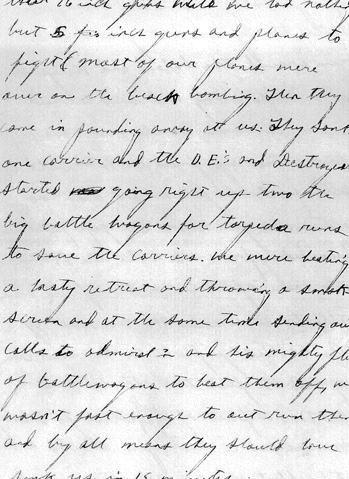 their 16 inch guns while we had nothin
but 5 inch guns and planes to
fight (most of our planes were
over on the beach bombing. Then they
come in pounding away at us. They sank
one carrier and the D.E.'s and Destroyers
started going right up two the
big battle wagons for torpedo runs
to save the carriers. We were beating
a hasty retreat and throwing a smoke
screen and at the same time sending out
calls to admiral ? and his mighty fl
of battlewagons to beat them off, we
wasn't fast enough to out run them
and by all means they should have
sunk us in 15 minutes